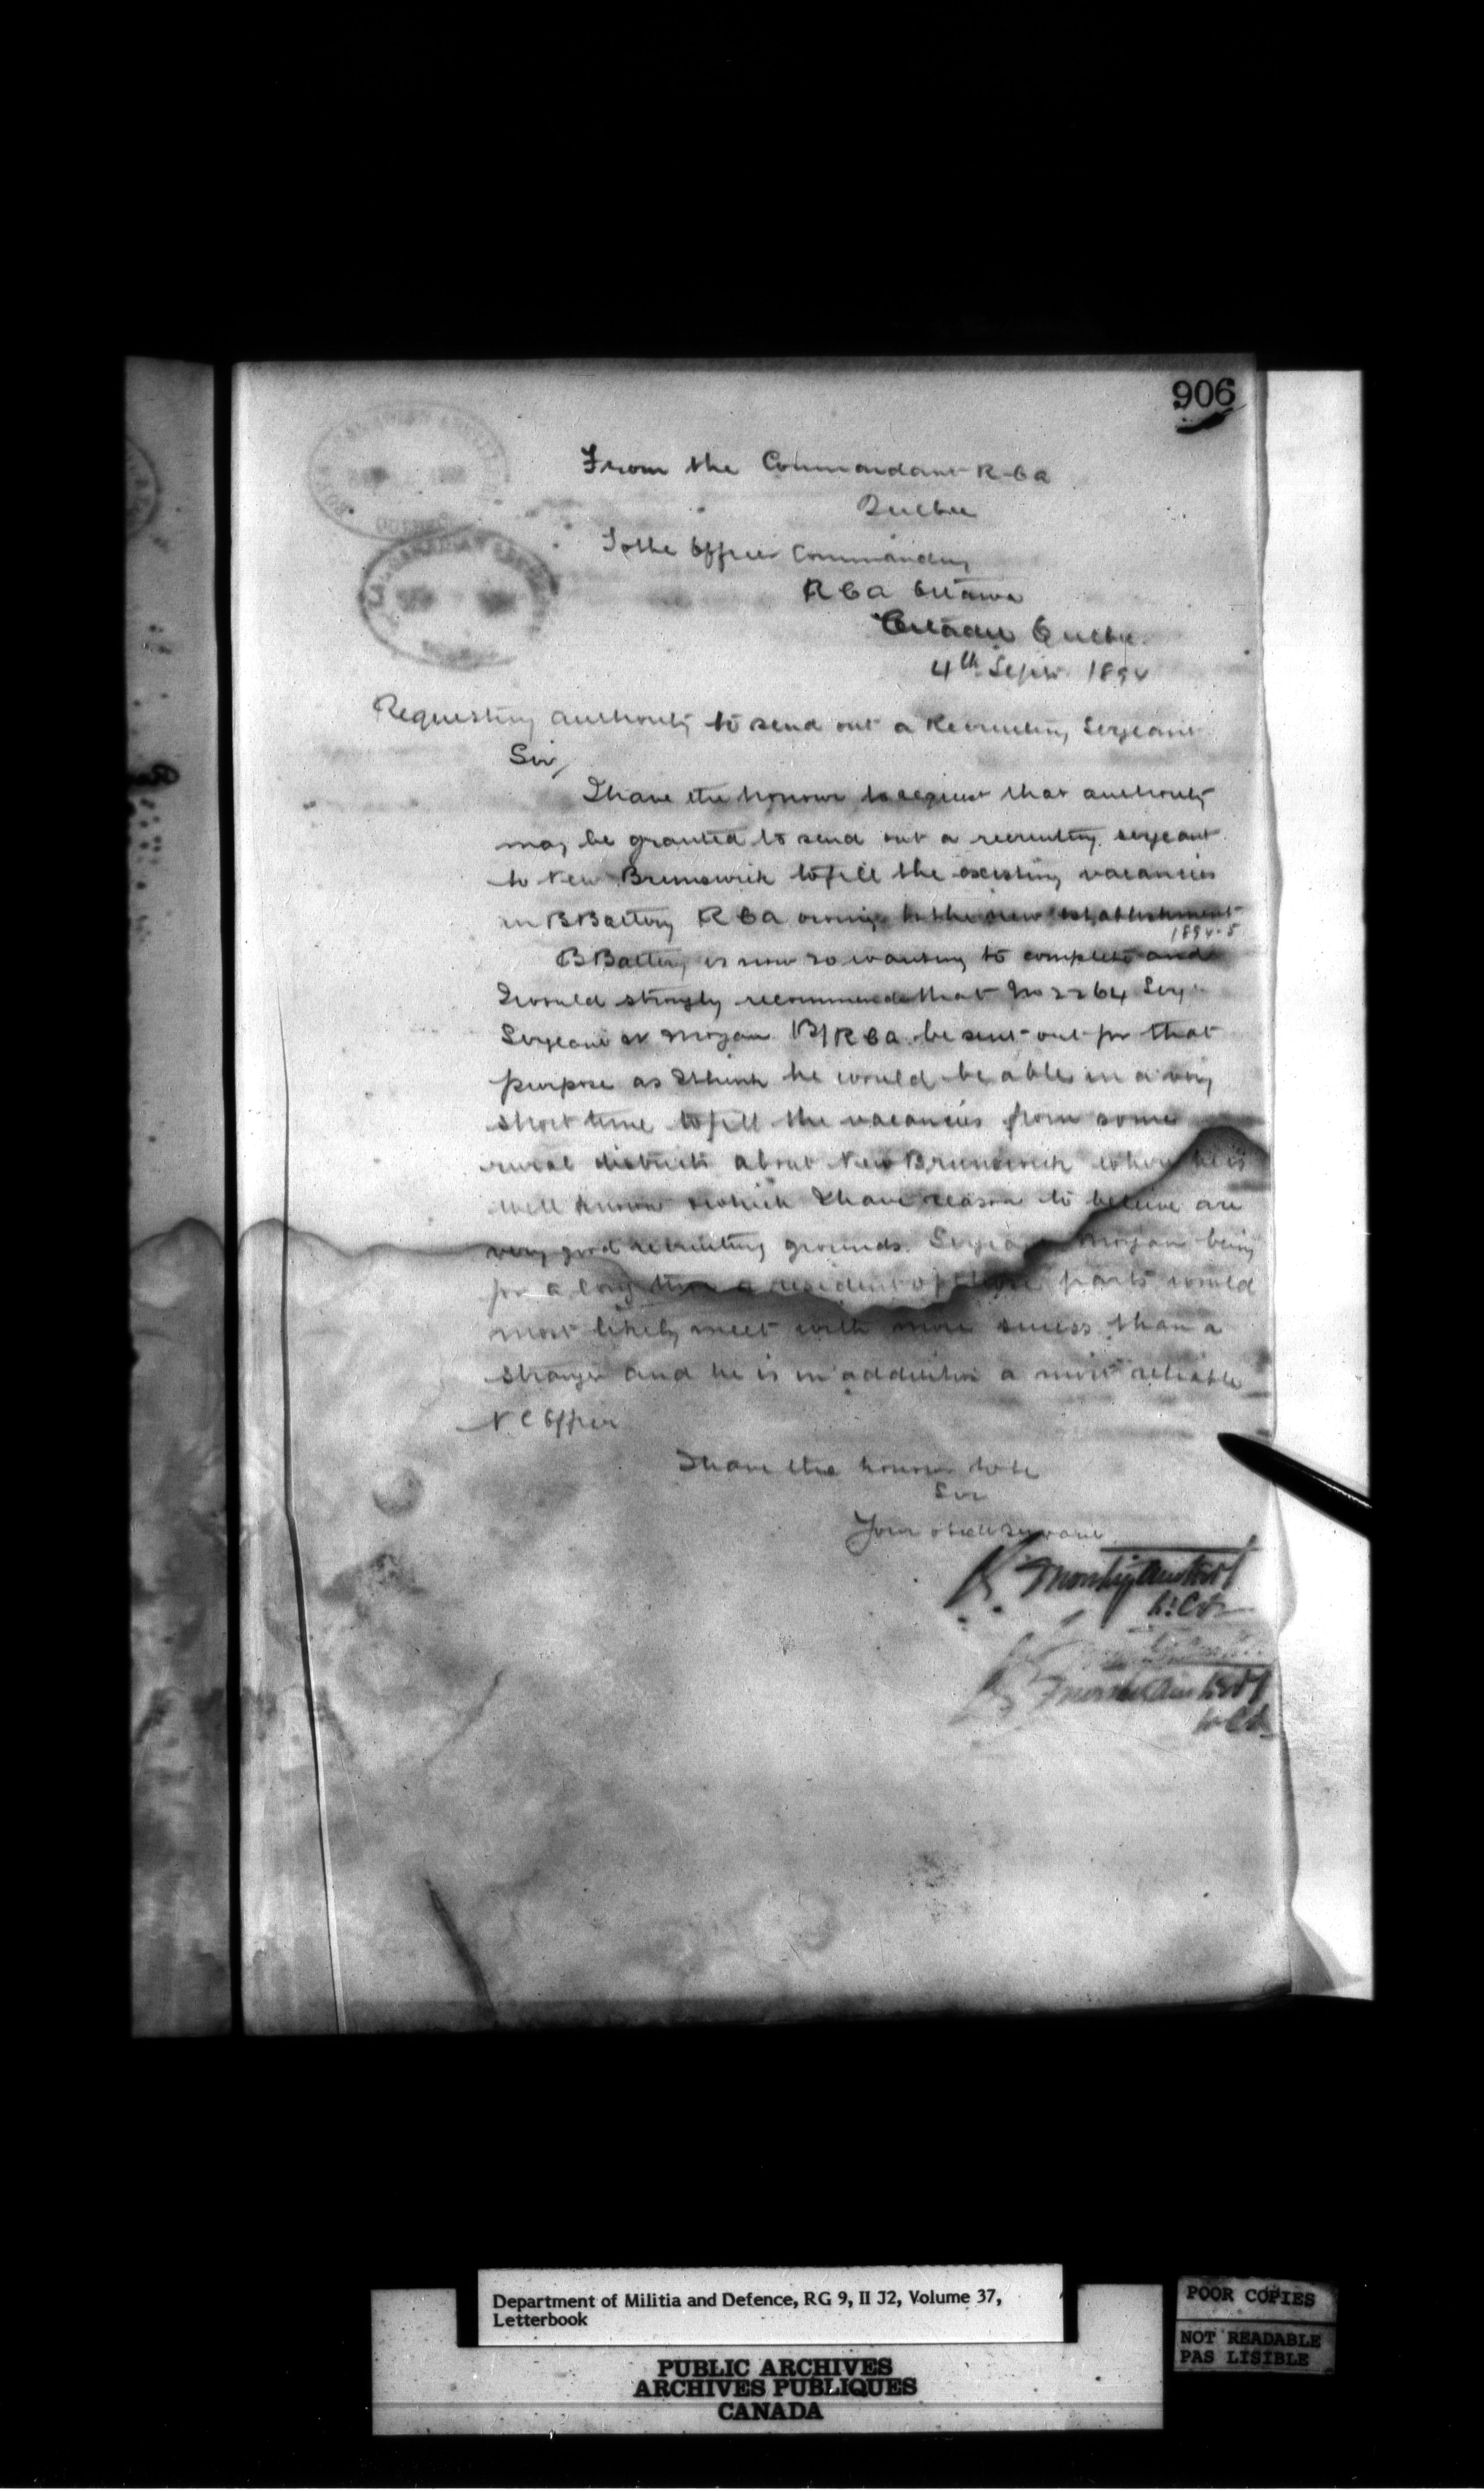 906
From the Commandant R C A
Quebec
To the Officer Commanding
R C A Ottawa
Citadel Quebec
4th Sept. 1894
Requesting authority to send out a Recruiting Sergeant
Sir,
I have the honour to request that authority
may be granted to send out a recruiting sergeant
to New Brunswick to fill the existing vacancies
in B Battery R C A owing to the new establishment
1894-5
B Battery is now 20 wanting to complete and
I would strongly recommend that No 2264
Sergeant Mogan B/R C A be sent out for that
purpose as I think he would be able in a very
short time to fill the vacancies from some
rural districts about New Brunswick where he is
well known & which I have reason to believe are
very good recruiting grounds. Sergeant Mogan being
for a long time a resident of those parts would
most likely meet with more success than a
stranger and he is in addition a most reliable
N. C. Officer
I have the honour to be
Sir
Your obedt servant
Lt. Col
Department of Militia and Defence, RG 9, II J2, Volume 37,
Letterbook
PUBLIC ARCHIVES
ARCHIVES PUBLIQUES
CANADA
POOR COPIES
NOT READABLE
PAS LISIBLE